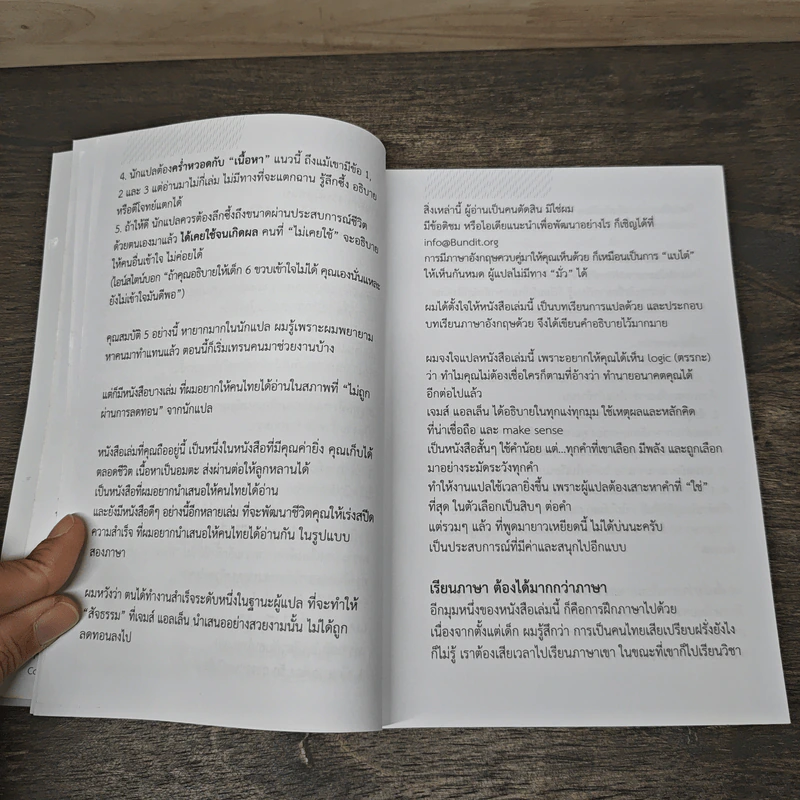 4. นักแปลต้องคร่ำหวอดกับ “เนื้อหา” แนวนี้ ถึงแม้เขามีข้อ 1,
2 และ 3 แต่อ่านมาไม่กี่เล่ม ไม่มีทางที่จะแตกฉาน รู้ลึกซึ้ง อธิบาย
หรือตีโจทย์แตกได้
5. ถ้าให้ดี นักแปลควรต้องลึกซึ้งถึงขนาดผ่านประสบการณ์ชีวิต
ด้วยตนเองมาแล้ว ได้เคยใช้จนเกิดผล คนที่ “ไม่เคยใช้” จะอธิบาย
ให้คนอื่นเข้าใจ ไม่ค่อยได้
(ไอน์สไตน์บอก “ถ้าคุณอธิบายให้เด็ก 6 ขวบเข้าใจไม่ได้ คุณเองนั่นแหละ
ยังไม่เข้าใจมันดีพอ”)
คุณสมบัติ 5 อย่างนี้ หายากมากในนักแปล ผมรู้เพราะผมพยายาม
หาคนมาทำแทนแล้ว ตอนนี้ก็เริ่มเทรนคนมาช่วยงานบ้าง
แต่ก็มีหนังสือบางเล่ม ที่ผมอยากให้คนไทยได้อ่านในสภาพที่ “ไม่ถูก
ผ่านการลดทอน” จากนักแปล
หนังสือเล่มที่คุณถืออยู่นี้ เป็นหนึ่งในหนังสือที่มีคุณค่ายิ่ง คุณเก็บได้
ตลอดชีวิต เนื้อหาเป็นอมตะ ส่งผ่านต่อให้ลูกหลานได้
เป็นหนังสือที่ผมอยากนำเสนอให้คนไทยได้อ่าน
และยังมีหนังสือดีๆ อย่างนี้อีกหลายเล่ม ที่จะพัฒนาชีวิตคุณให้เร่งสปีด
ความสำเร็จ ที่ผมอยากนำเสนอให้คนไทยได้อ่านกัน ในรูปแบบ
สองภาษา
ผมหวังว่า ตนได้ทำงานสำเร็จระดับหนึ่งในฐานะผู้แปล ที่จะทำให้
“สัจธรรม” ที่เจมส์ แอลเล็น นำเสนออย่างสวยงามนั้น ไม่ได้ถูก
ลดทอนลงไป
Co
สิ่งเหล่านี้ ผู้อ่านเป็นคนตัดสิน มิใช่ผม
มีข้อติชม หรือไอเดียแนะนำเพื่อพัฒนาอย่างไร ก็เชิญได้ที่
info@Bundit.org
การมีภาษาอังกฤษควบคู่มาให้คุณเห็นด้วย ก็เหมือนเป็นการ “แบไต๋”
ให้เห็นกันหมด ผู้แปลไม่มีทาง “มั่ว” ได้
ผมได้ตั้งใจให้หนังสือเล่มนี้ เป็นบทเรียนการแปลด้วย และประกอบ
บทเรียนภาษาอังกฤษด้วย จึงได้เขียนคำอธิบายไว้มากมาย
ผมจงใจแปลหนังสือเล่มนี้ เพราะอยากให้คุณได้เห็น logic (ตรรกะ)
ว่า ทำไมคุณไม่ต้องเชื่อใครก็ตามที่อ้างว่า ทำนายอนาคตคุณได้
อีกต่อไปแล้ว
เจมส์ แอลเล็น ได้อธิบายในทุกแง่ทุกมุม ใช้เหตุผลและหลักคิด
ที่น่าเชื่อถือ และ make sense
เป็นหนังสือสั้นๆ ใช้คำน้อย แต่...ทุกคำที่เขาเลือก มีพลัง และถูกเลือก
มาอย่างระมัดระวังทุกคำ
ทำให้งานแปลใช้เวลายิ่งขึ้น เพราะผู้แปลต้องเสาะหาคำที่ “ใช่”
ที่สุด ในตัวเลือกเป็นสิบๆ ต่อคำ
แต่รวมๆ แล้ว ที่พูดมายาวเหยียดนี้ ไม่ได้บ่นนะครับ
เป็นประสบการณ์ที่มีค่าและสนุกไปอีกแบบ
เรียนภาษา ต้องได้มากกว่าภาษา
อีกมุมหนึ่งของหนังสือเล่มนี้ ก็คือการฝึกภาษาไปด้วย
เนื่องจากตั้งแต่เด็ก ผมรู้สึกว่า การเป็นคนไทยเสียเปรียบฝรั่งยังไง
ก็ไม่รู้ เราต้องเสียเวลาไปเรียนภาษาเขา ในขณะที่เขาก็ไปเรียนวิชา